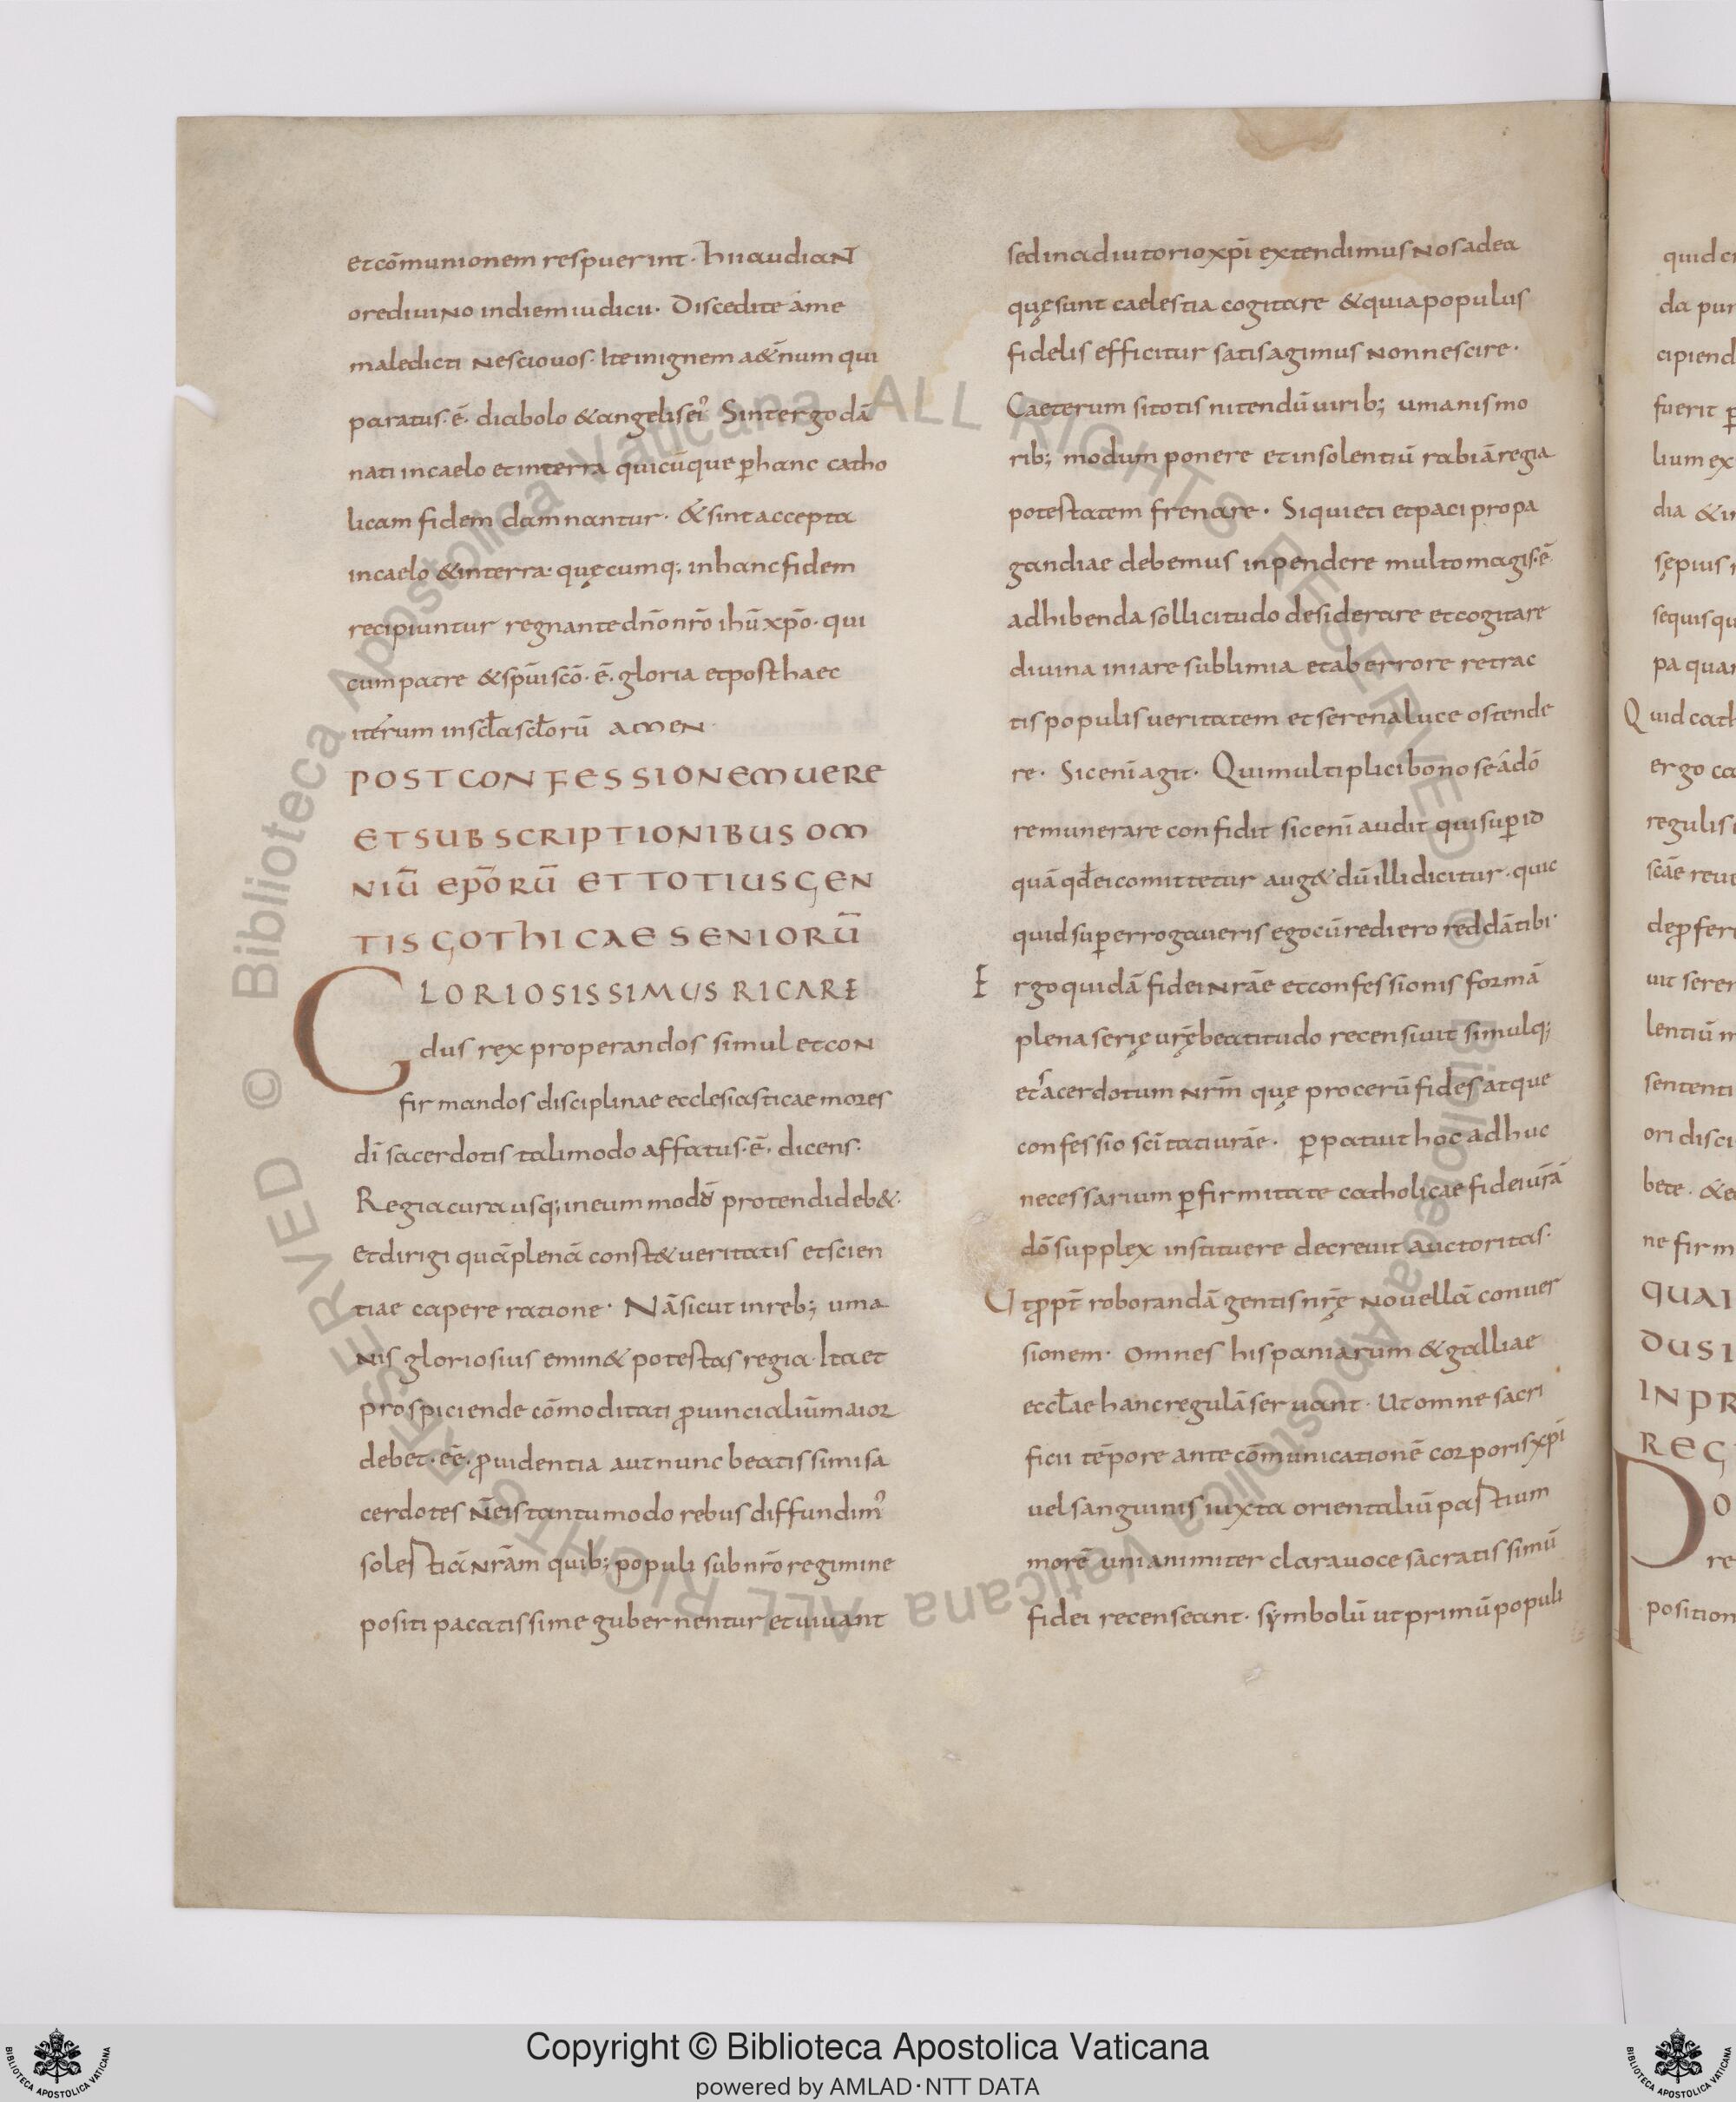 et cōmunionem respuerint· hii audiant
ore diuino in diem iudicii· Discedite áme
maledicti nescio uos· Ite in ignem a&́num qui
paratus· ē· diabolo & angelis ei᾽ Sint ergo dā
nati in caelo et in terra quicūque p̄ hanc catho
licam fidem damnantur· & sint accepta
in caelo & in terra· quęcumq; in hanc fidem
recipiuntur regnante dn̄o nr̄o ihū xp̄o· qui
cum patre & sp̄ui scō· ē· gloria et post haec
iterum in scl̄a scl̄orū amen·
POST CONFESSIONEM UERE
ET SUBSCRIPTIONIBUS OM
NIŪ EP̄ORŪ ET TOTIUS GEN
TIS GOTHICAE SENIORŪ
GLORIOSISSIMUS RICARE
dus rex properandos simul et con
firmandos disciplinae ecclesiasticae mores
dī sacerdotis tali modo affatus· ē· dicens·
Regia cura usq; in eum modū protendi deb&·
Et dirigi quā plenā const& ueritatis et scien
tiae capere ratione· Nā sicut in reb; uma
nis gloriosius emin& potestas regia· Ita et
prospiciende cōmoditati ꝓuincialiū maior
debet· eē· ꝓuidentia aut nunc beatissimi sa
cerdotes n̄ eis tantumodo rebus diffundim᾽
solestiā nrām quib; populi sub nr̄o regimine
positi pacatissime gubernentur et uiuant
sed in adiutorio xp̄i extendimus nos ad ea
quę sunt caelestia cogitare & quia populus
fidelis efficitur satis agimus non nescire·
Caeterum si totis nitendū uirib; umanis mo
rib; modum ponere et insolentiū rabiā regia
potestatem frenare· Si quieti et paci propa
gandiae debemus inpendere multo magis· ē
adhibenda sollicitudo desiderare et cogitare
diuina iniare sublimia et ab errore retrac
tis populis ueritatem et serena luce ostende
re· Sic enī agit· Qui multiplici bono se á dō
remunerare confidit sic enī audit qui sup̄ id
quā qđ ei comittetur aug& dū illi dicitur· quic
quid sup̄errogaueris ego cū rediero reddā tibi·
Ergo quidā fidei nrāe et confessionis formā
plena serię urę̄ beatitudo recensiuit simulq;
et sacerdotum nr̄m quę procerū fides atque
confessio scītati urāe· p̄patuit hoc adhuc
necessarium p̄ firmitate catholicae fidei urā
dō supplex instituere decreuit auctoritas·
Ut ꝓpt̄ roborandā gentis nrę̄ nouellā conuer
sionem· Omnes hispaniarum & galliae
eccl̄ae hanc regulā seruant· Ut omne sacri
ficii tēpore ante cōmunicationē corporis xp̄i
uel sanguinis iuxta orientaliū pastium
morē unianimiter clara uoce sacratissimū
fidei recenseant· sẏmbolū ut primū populi
Copyright © Biblioteca Apostolica Vaticana
powered by AMLAD·NTT DATA